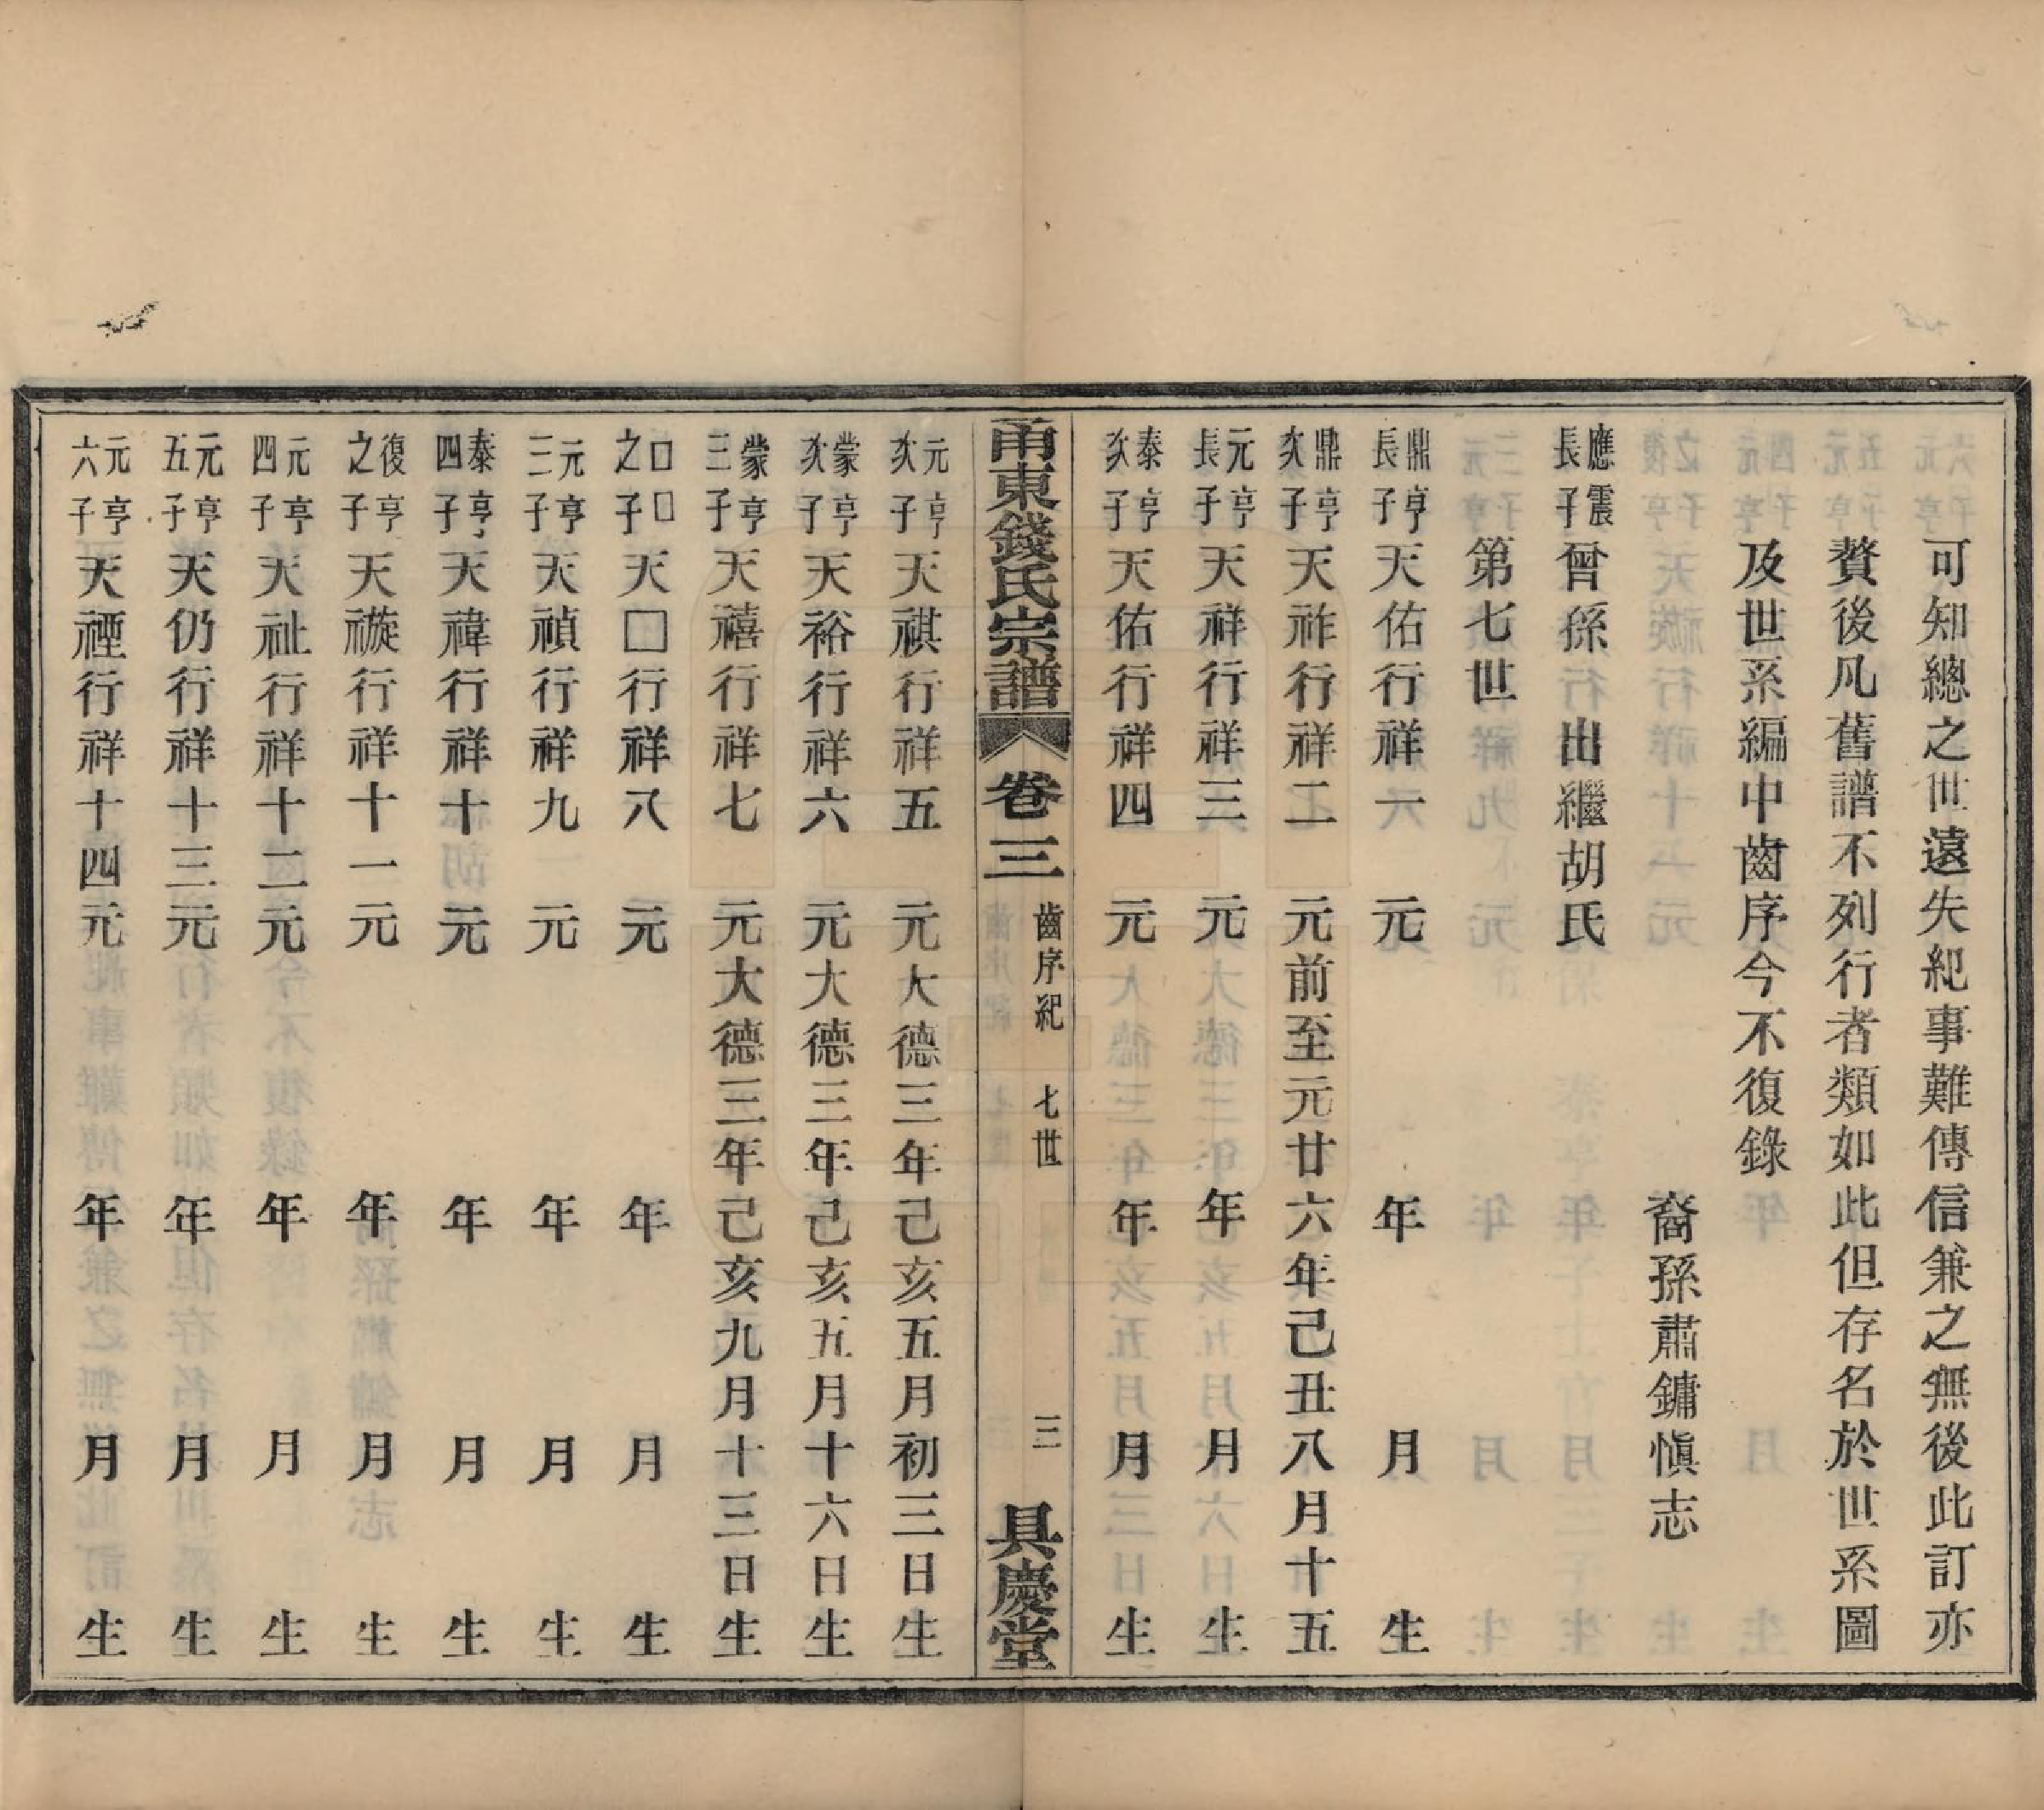 可知總之世遠失紀事難傳信兼之無後此訂亦
贅後凡舊譜不列行者類如此但存名於世系圖
及世系編中齒序今不復錄
裔孫肅鏞愼志
應震長子曾孫 出繼胡氏
第七世
鼎亨長子天佑行祥一 元 年 月 生
鼎亨次子天祚行祥二 元前至元廿六年己丑八月十五
元亨長子天祥行祥三 元 年 月 生
泰亨次子天佑行祥四 元 年 月 生
甬東錢氏宗譜 卷三 齒序紀 七世 三 具慶堂
元亨次子天祺行祥五 元大德三年己亥五月初三日生
蒙亨次子天裕行祥六 元大德三年己亥五月十六日生
蒙亨三子天禧行祥七 元大德三年己亥九月十三日生
□□之子天□行祥八 元 年 月 生
元亨三子天禎行祥九 元 年 月 生
泰亨四子天禕行祥十 元 年 月 生
復亨之子天禭行祥十一元 年 月 生
元亨四子天祉行祥十二元 年 月 生
元亨五子天礽行祥十三元 年 月 生
元亨六子天禋行祥十四元 年 月 生